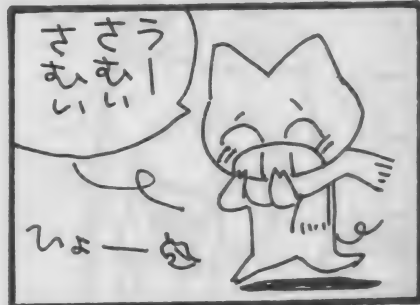 うー
さむい
さむい
ひょー